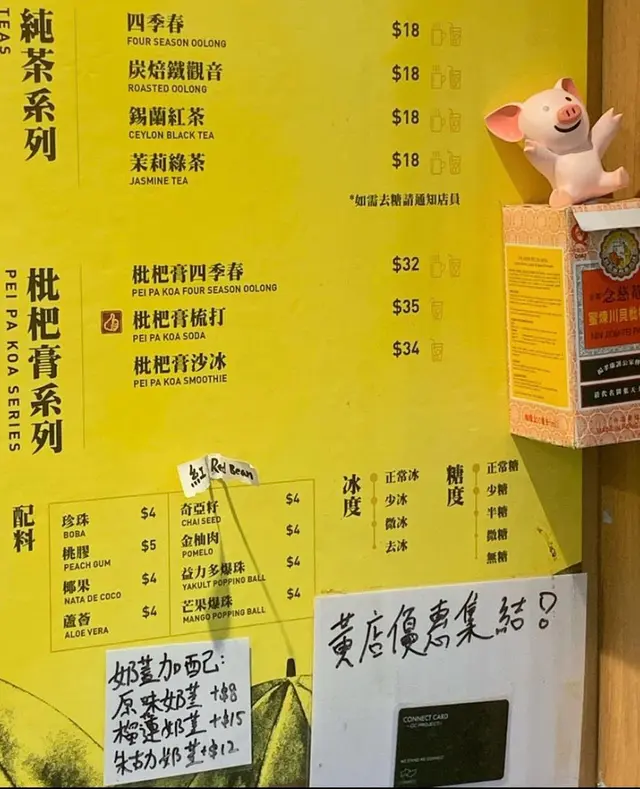 純茶系列
TEAS
四季春
FOUR SEASON OOLONG
$18
炭焙鐵觀音
ROASTED OOLONG
$18
錫蘭紅茶
CEYLON BLACK TEA
$18
茉莉綠茶
JASMINE TEA
$18
*如需去糖請通知店員
枇杷膏系列
PEI PA KOA SERIES
枇杷膏四季春
PEI PA KOA FOUR SEASON OOLONG
$32
枇杷膏梳打
PEI PA KOA SODA
$35
枇杷膏沙冰
PEI PA KOA SMOOTHIE
$34
紅 Red Bean
配料
珍珠
BOBA
$4
桃膠
PEACH GUM
$5
椰果
NATA DE COCO
$4
蘆薈
ALOE VERA
$4
奇亞籽
CHAI SEED
$4
金柚肉
POMELO
$4
益力多爆珠
YAKULT POPPING BALL
$4
芒果爆珠
MANGO POPPING BALL
$4
冰度
正常冰
少冰
微冰
去冰
糖度
正常糖
少糖
半糖
微糖
無糖
奶蓋加配:
原味奶蓋 +$8
榴蓮奶蓋 +$15
朱古力奶蓋 +$12
黃店優惠集結!
CONNECT CARD
念慈菴
蜜煉川貝枇杷